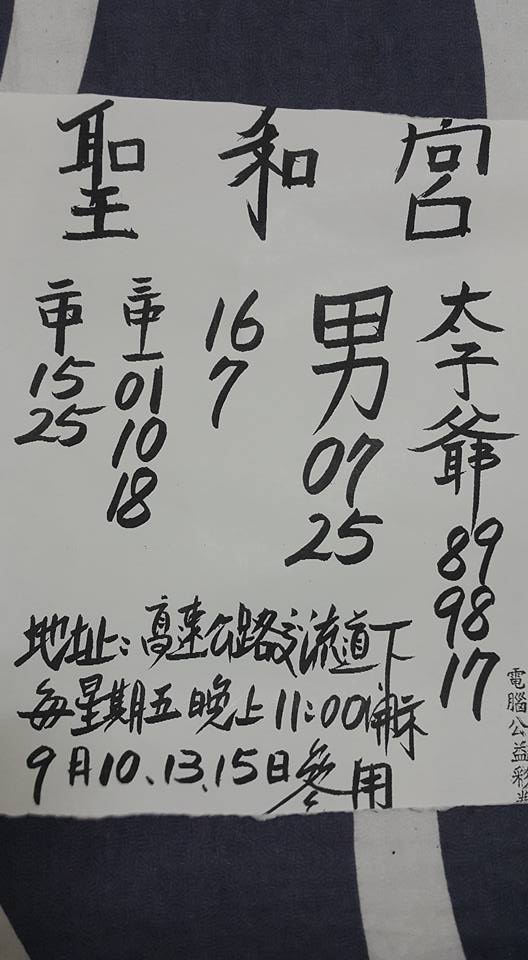 聖和宮
太子爺
89
98
17
男
07
25
16
7
三中一
01
10
18
二中
15
25
地址:高速公路交流道下
每星期五晚上11:00開示
9月10、13、15日參用
電腦公益彩